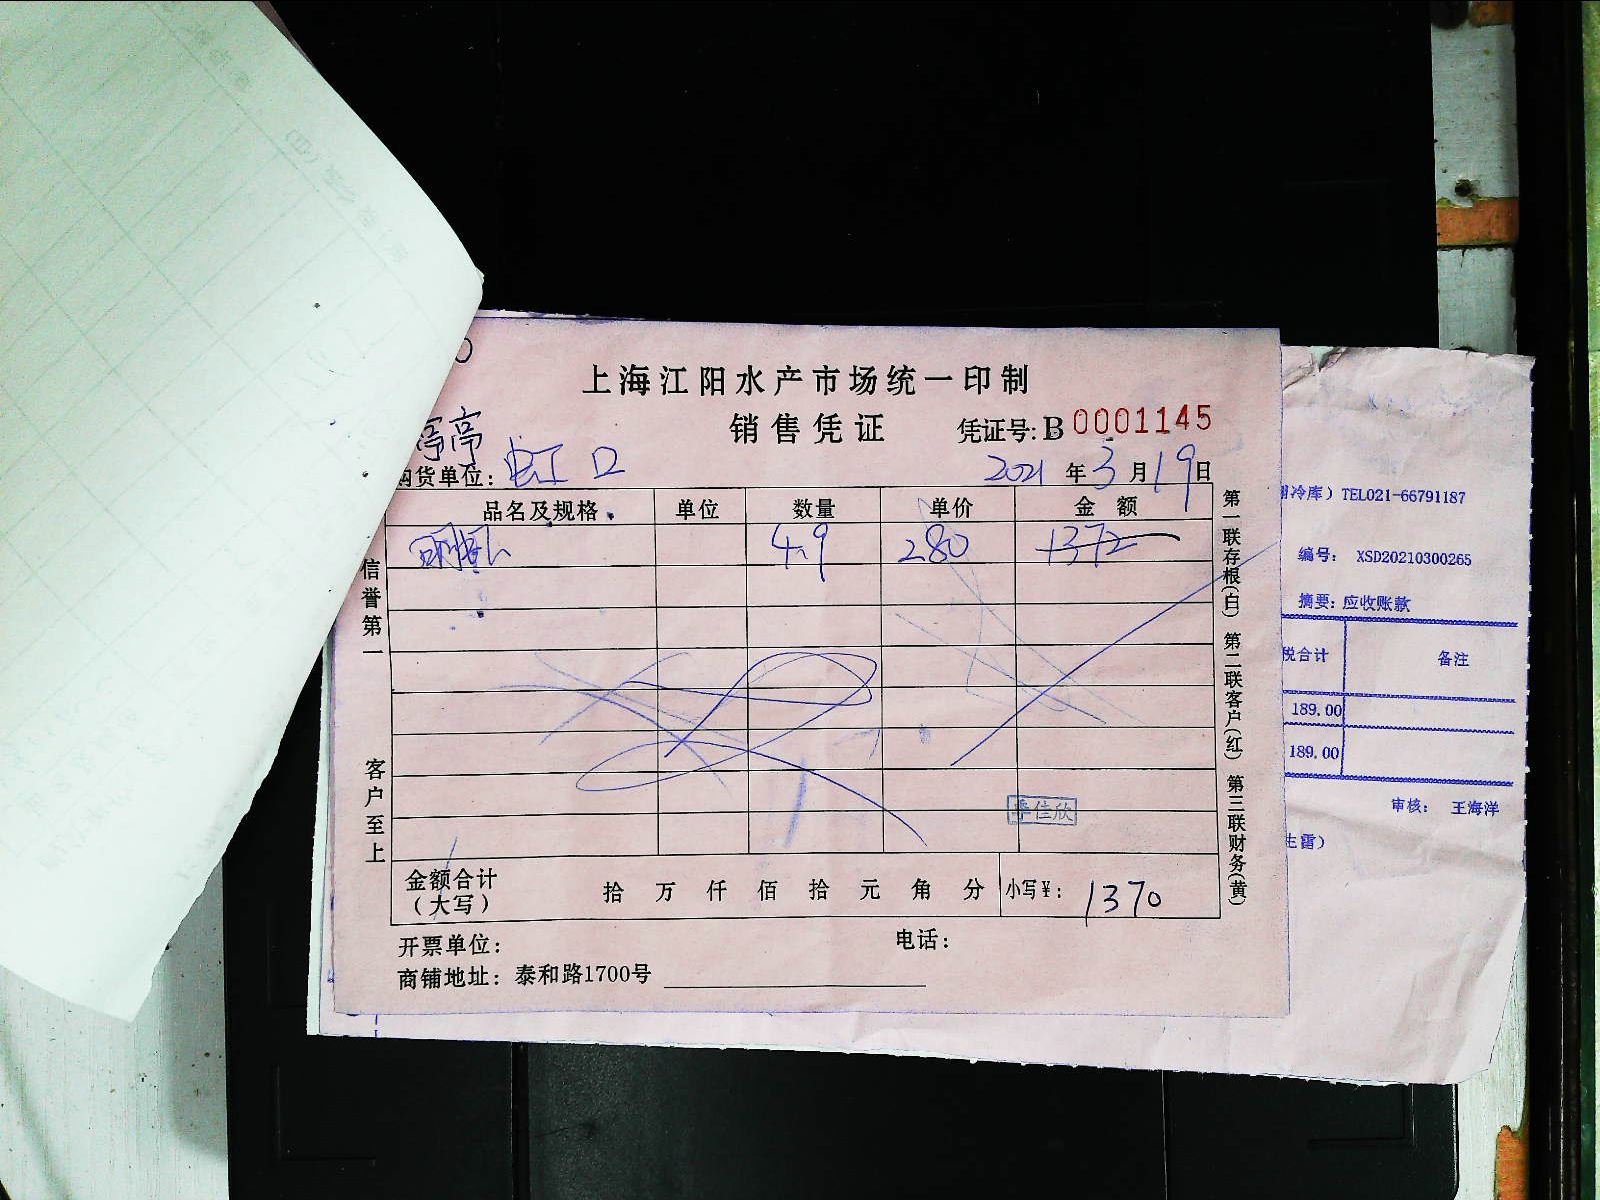 上海江阳水产市场统一印制
销售凭证
凭证号:B 0001145
亭
购货单位: 虹口
2021 年 3 月 19 日
品名及规格 单位 数量 单价 金额
4.9 280 1372
信誉第一
客户至上
第一联存根(白) 第二联客户(红) 第三联财务(黄)
李佳欣
金额合计(大写) 拾 万 仟 佰 拾 元 角 分 小写¥: 1370
开票单位:
电话:
商铺地址: 泰和路1700号
冷库) TEL021-66791187
编号: XSD20210300265
摘要: 应收账款
税合计 备注
189.00
189.00
审核: 王海洋
生雷)